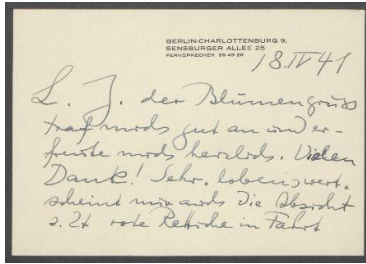 BERLIN-CHARLOTTENBURG 9.
SENSBURGER ALLEE 25
FERNSPRECHER 99 49 26
18.IV 41
L. J. der Blumengruss
traf mich gut an und er-
freute mich herzlich. Vielen
Dank! Sehr lobenswert
scheint mir auch die Absicht
z. Zt rote Rettiche in Fahrt